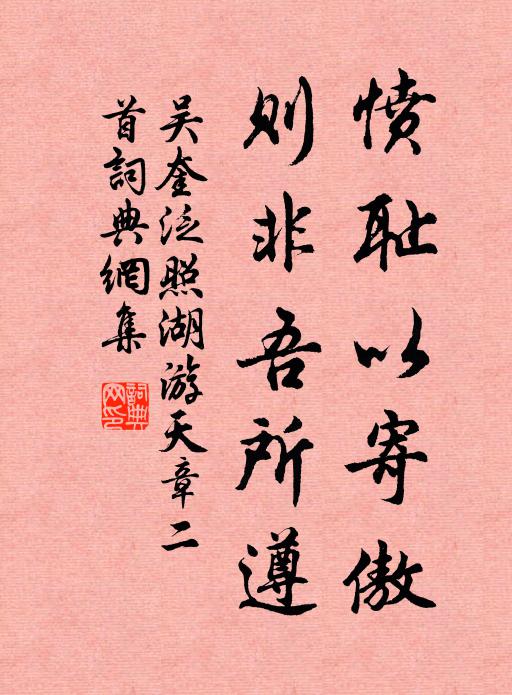 愤耻以寄傲
则非吾所遵
吴奎泛照湖游天章二
首词典網集
詞典網印